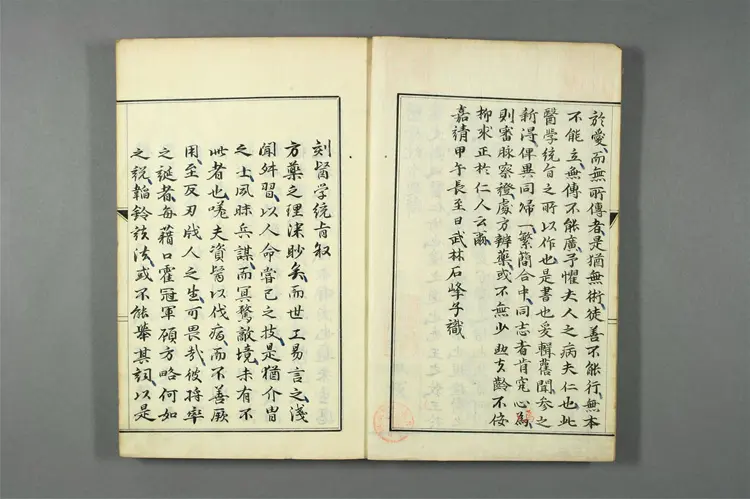 於愛、而無所傳者是猶無術、徒善不能行、無本
不能立、無傳不能廣、予懼夫人之病夫仁也、此
醫学統旨之所以作也、是書也爰輯舊聞、参之
新得、俾異同㱕一、繁簡合中、同志者肯究心焉、
則審脉察證處方辨藥、或不無少助、玄齡不佞
抑求正於仁人云爾
嘉靖甲午長至日武林石峰子識
刻醫学統旨叙
方藥之理深眇矣、而世工易言之、淺
聞舛習、以人命嘗己之技、是猶介冑
之士、夙昧兵謀、而冥騖敵境、未有不
此者也、嗟夫資醫以伐病、而不善厥
用、至反刃戕人之生、可畏哉、彼將率
之綖者、每藉口霍冠軍顧方略何如
之說、韜鈐玆法、或不能舉其詞、以是